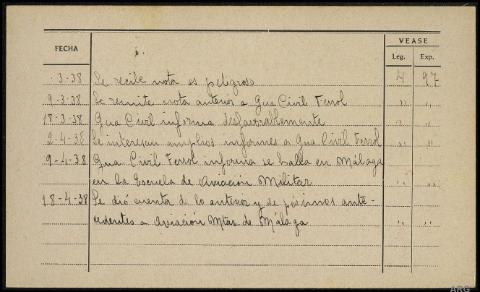 VEASE
FECHA Leg. Exp.
-3-38 Se recibe nota es peligroso 4 97
9-3-38 Se remite nota anterior a Gua Civil Ferrol " "
18-3-38 Gua Civil informa desfavorablemente " "
2-4-38 Se interesan amplios informes a Gua Civil Ferrol " "
9-4-38 Gua Civil Ferrol informa se halla en Málaga
en la Escuela de Aviación Militar " "
18-4-38 Se dió cuenta de lo anterior y de pésimos ante-
cedentes a Aviación Mtar de Málaga " "
ARG